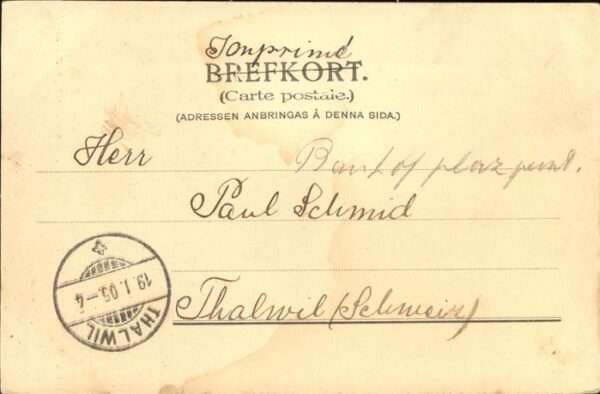 Imprimé
BREFKORT.
(Carte postale.)
(ADRESSEN ANBRINGAS Å DENNA SIDA.)
Herr
Paul Schmid
Thalwil (Schweiz)
THALWIL
19.1.05.-4